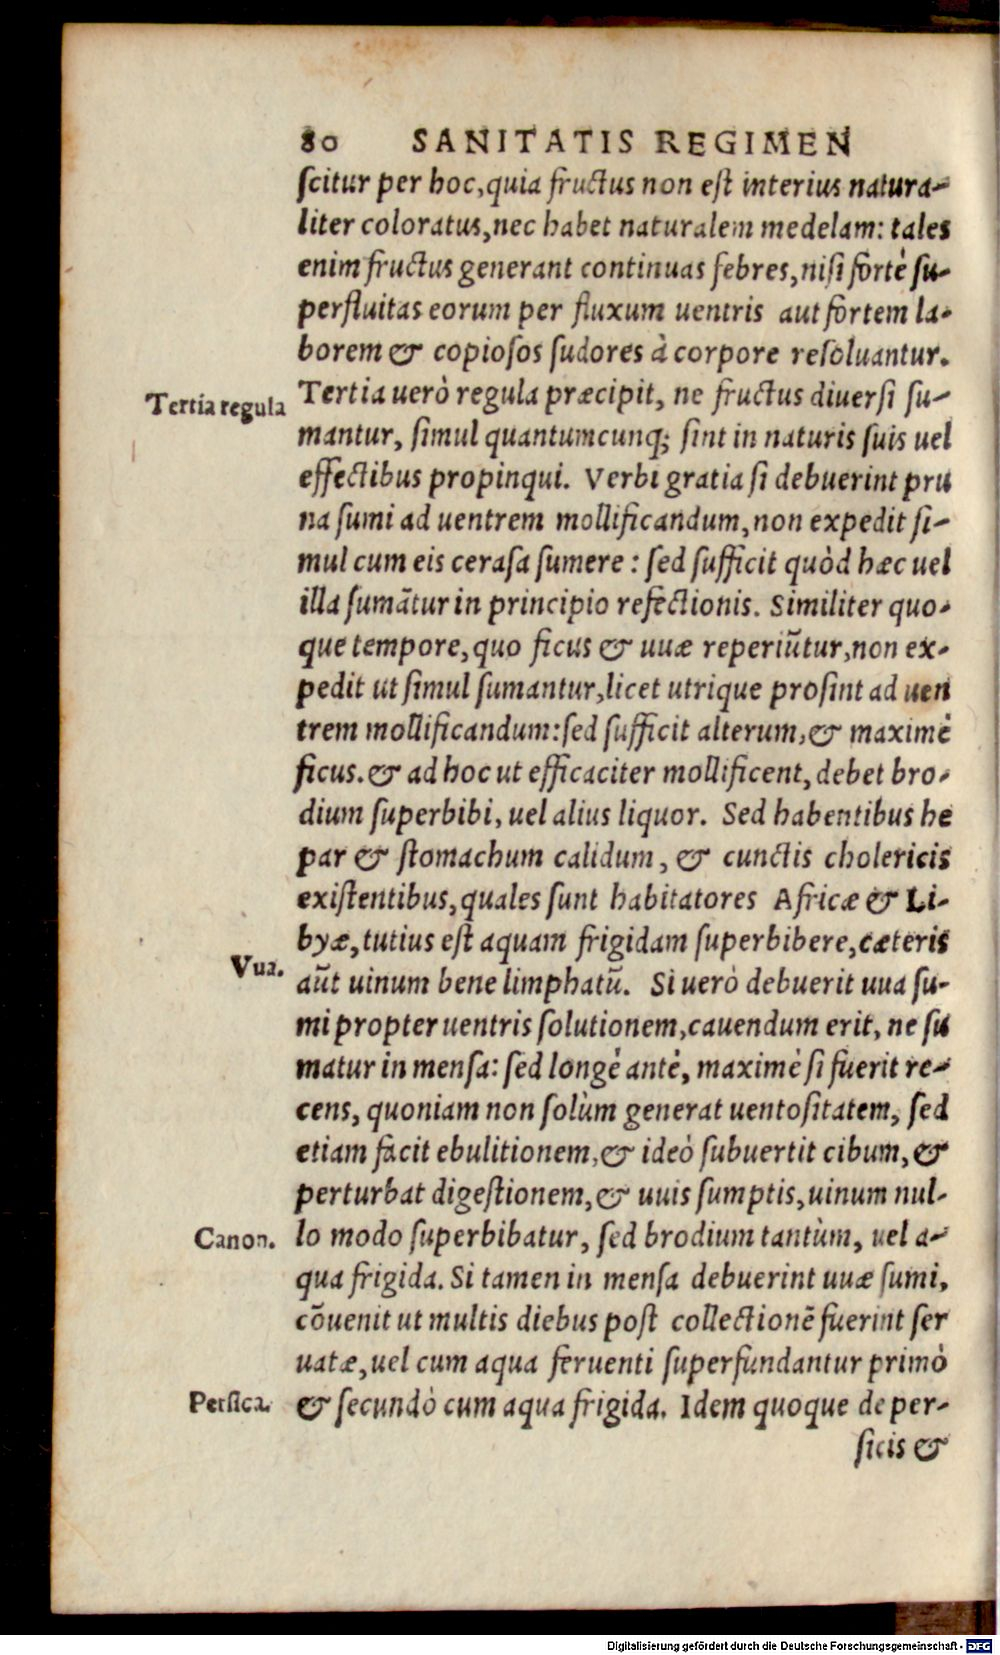 80 SANITATIS REGIMEN
ſcitur per hoc,quia fructus non eſt interius natura-
liter coloratus,nec habet naturalem medelam: tales
enim fructus generant continuas febres,niſi fortè ſu-
perfluitas eorum per fluxum uentris aut fortem la-
borem & copioſos ſudores à corpore reſoluantur.
Tertia regula
Tertia uerò regula præcipit, ne fructus diuerſi ſu-
mantur, ſimul quantumcunq; ſint in naturis ſuis uel
effectibus propinqui. Verbi gratia ſi debuerint pru
na ſumi ad uentrem mollificandum,non expedit ſi-
mul cum eis ceraſa ſumere : ſed ſufficit quòd hæc uel
illa ſumãtur in principio refectionis. Similiter quo-
que tempore,quo ficus & uuæ reperiũtur,non ex-
pedit ut ſimul ſumantur,licet utrique proſint ad uen
trem mollificandum:ſed ſufficit alterum,& maximè
ficus.& ad hoc ut efficaciter mollificent,debet bro-
dium ſuperbibi, uel alius liquor. Sed habentibus he
par & ſtomachum calidum, & cunctis cholericis
exiſtentibus,quales ſunt habitatores Africæ & Li-
byæ,tutius eſt aquam frigidam ſuperbibere,cæteris
Vua.
aũt uinum bene limphatũ. Si uerò debuerit uua ſu-
mi propter uentris ſolutionem,cauendum erit, ne ſu
matur in menſa: ſed longè antè, maximè ſi fuerit re-
cens, quoniam non ſolùm generat uentoſitatem, ſed
etiam facit ebulitionem,& ideò ſubuertit cibum, &
perturbat digeſtionem,& uuis ſumptis,uinum nul-
Canon.
lo modo ſuperbibatur, ſed brodium tantùm, uel a-
qua frigida. Si tamen in menſa debuerint uuæ ſumi,
cõuenit ut multis diebus poſt collectionẽ fuerint ſer
uatæ,uel cum aqua feruenti ſuperfundantur primò
Perſica.
& ſecundò cum aqua frigida. Idem quoque de per-
ſicis &
Digitalisierung gefördert durch die Deutsche Forschungsgemeinschaft - DFG